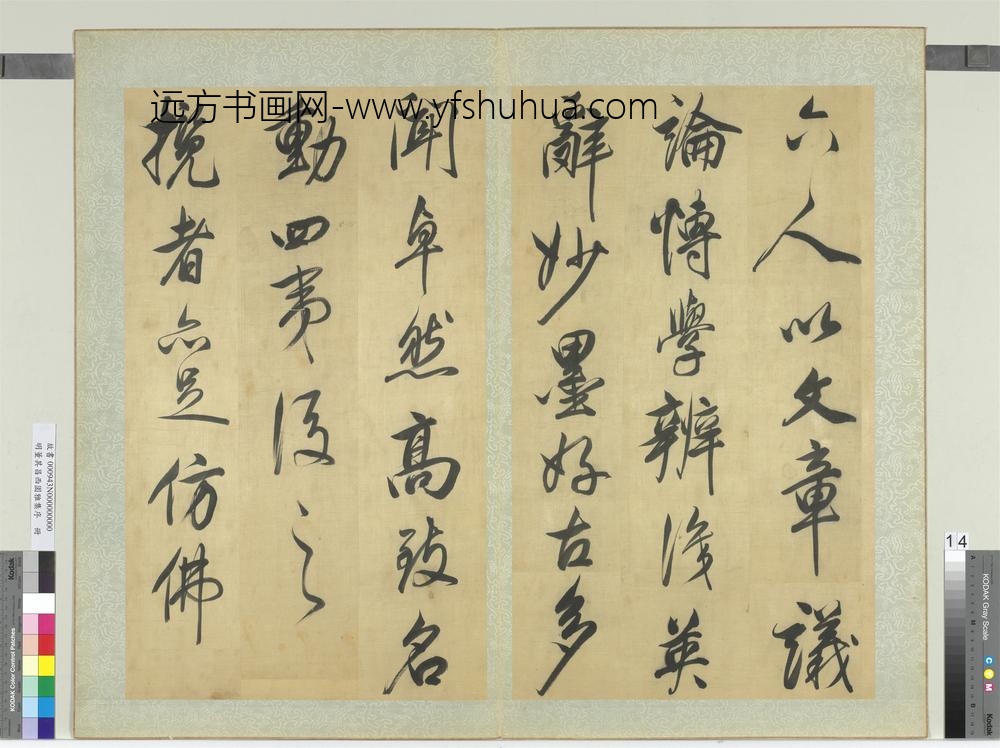 远方书画网-www.yfshuhua.com
六人以文章議
論博學辨識英
辭妙墨好古多
聞卓然高致名
動四夷後之
攬者亦足仿佛
故書 000943N000000000
明董其昌西園雅集序 冊
14
KODAK Gray Scale
C
Y
M
Kodak
A
M
B
Kodak
KODAK Color Control Patches